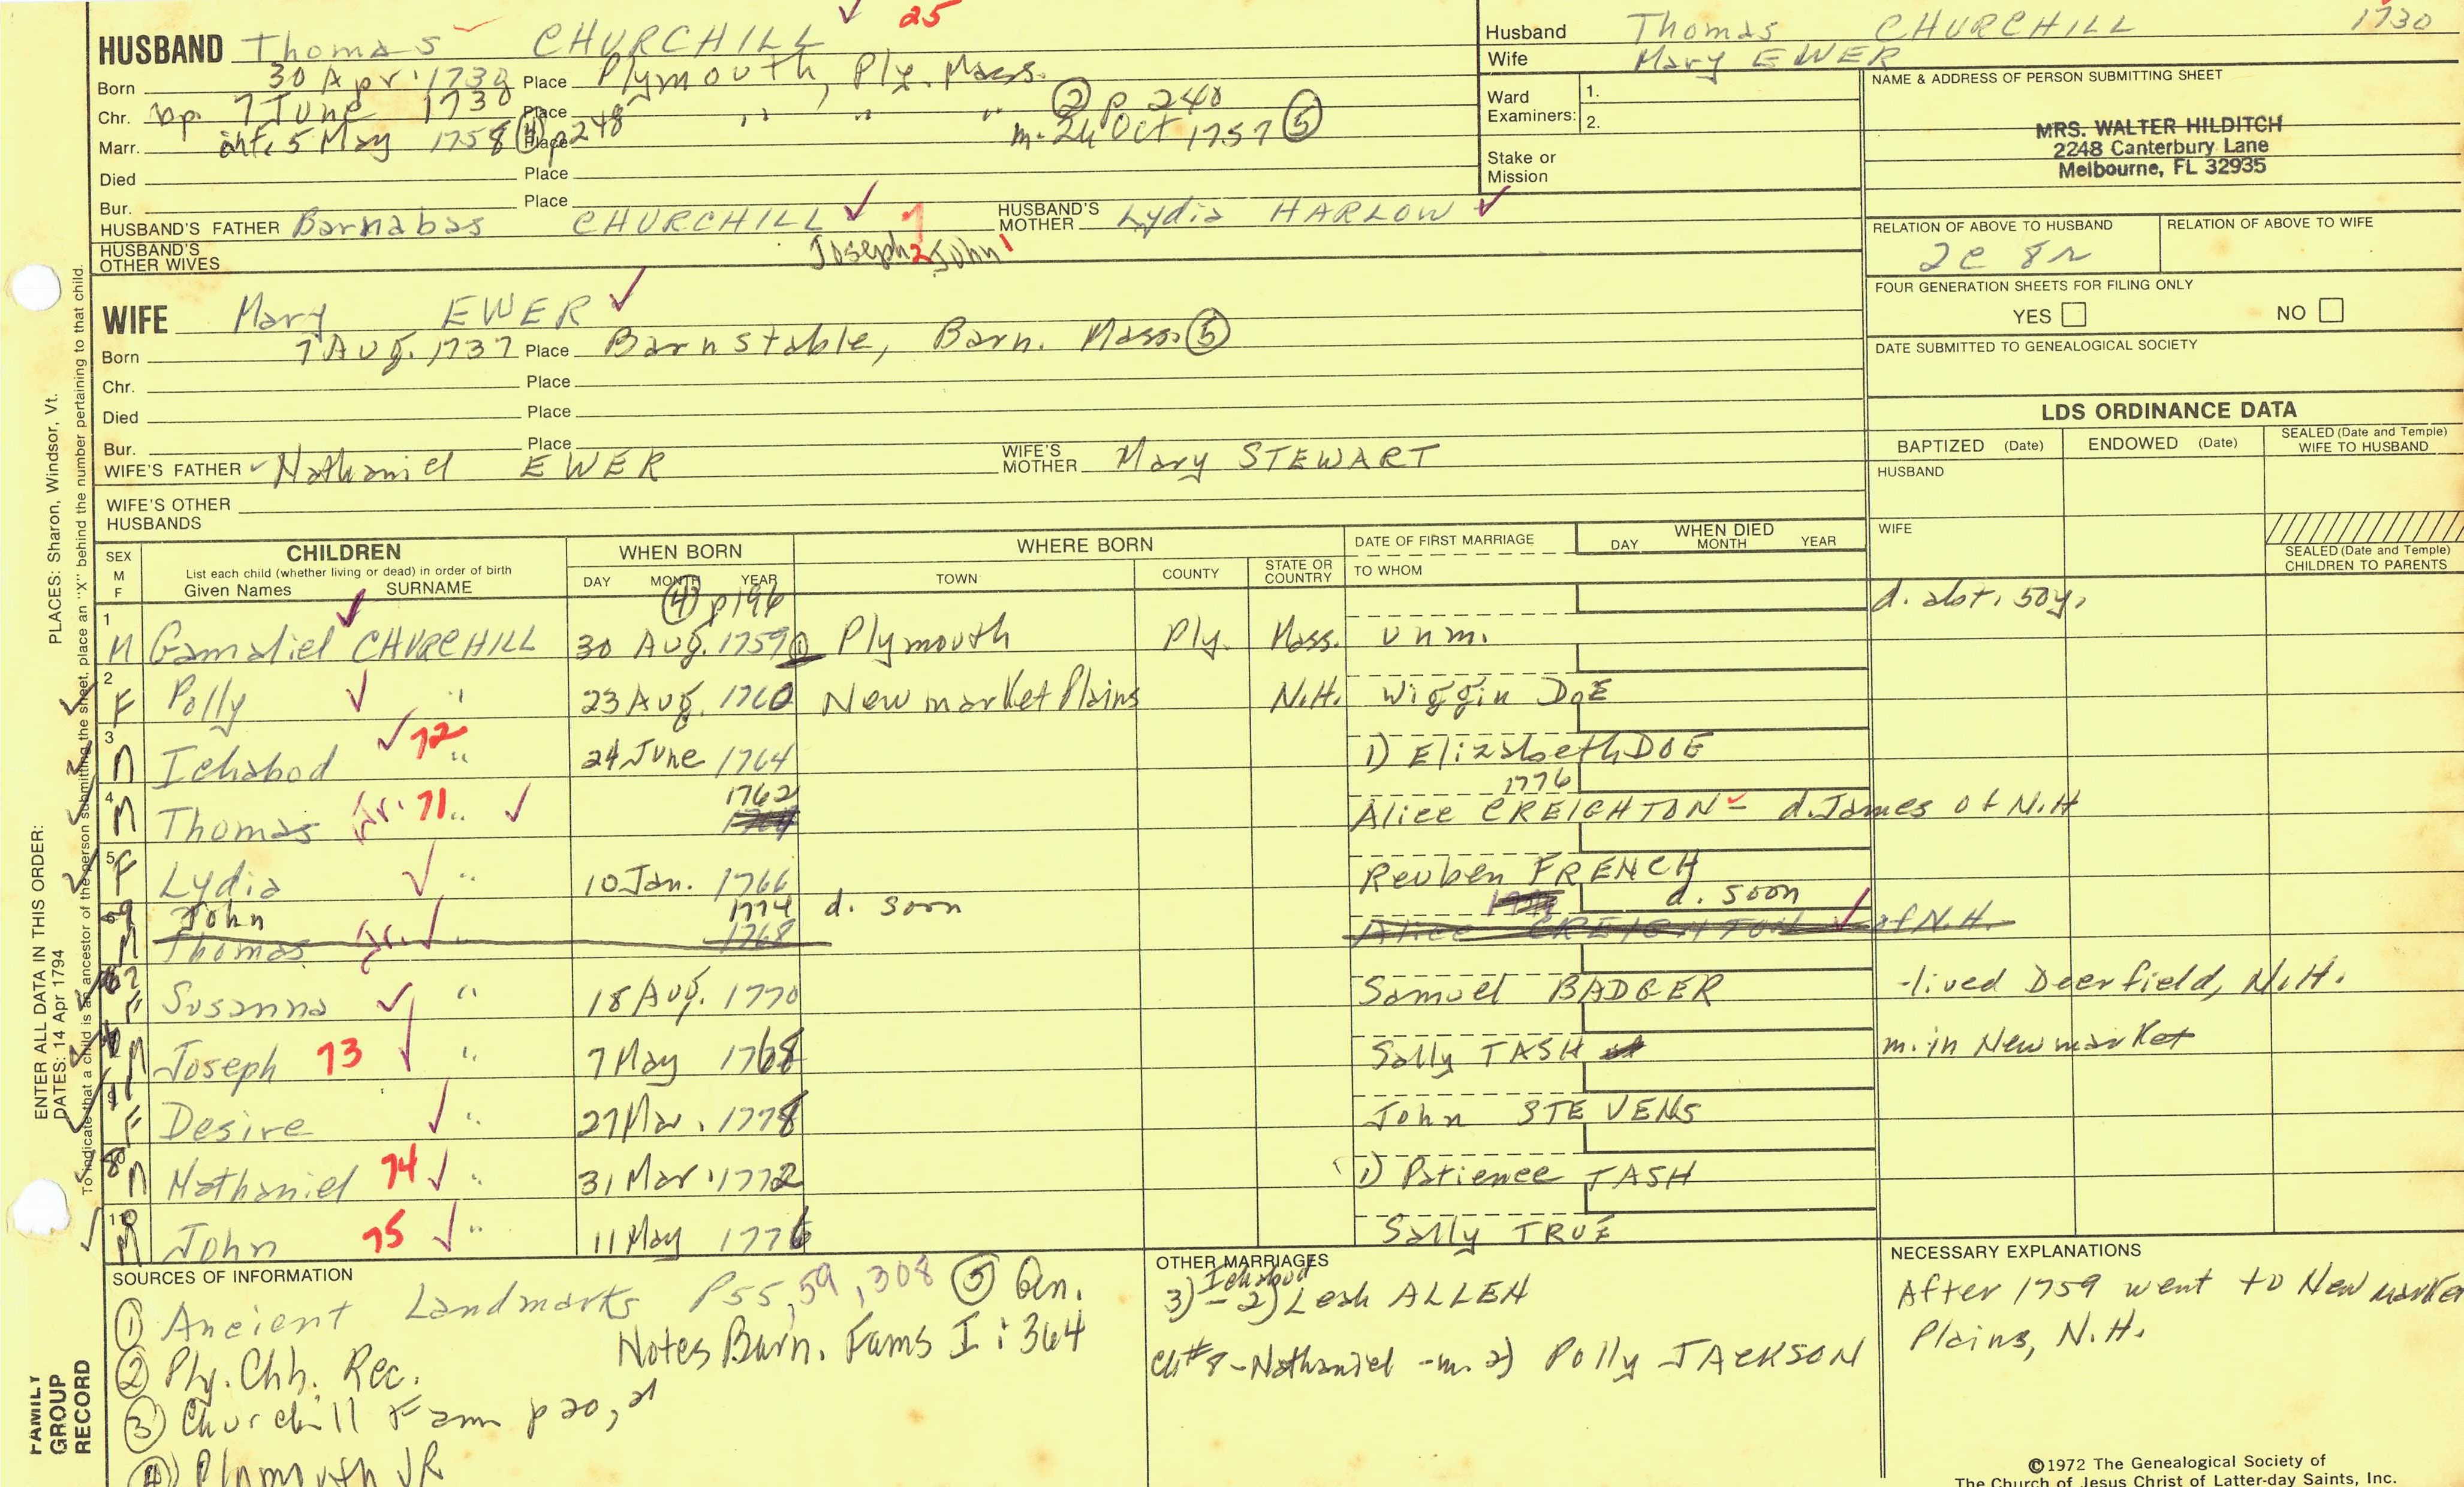 HUSBAND Thomas CHURCHILL 25
Born 30 Apr. 1730 Place Plymouth, Ply. Mass.
Chr. bp. 7 June 1730 Place " " " ② p 240
Marr. int. 5 May 1758 ④ p 248 Place m. 24 Oct 1757 ⑤
Died Place
Bur. Place
HUSBAND'S FATHER Barnabas CHURCHILL HUSBAND'S MOTHER Lydia HARLOW
Joseph 2 John 1
HUSBAND'S OTHER WIVES
Husband Thomas CHURCHILL 1730
Wife Mary EWER
Ward Examiners: 1.
2.
Stake or Mission
NAME & ADDRESS OF PERSON SUBMITTING SHEET
MRS. WALTER HILDITCH
2248 Canterbury Lane
Melbourne, FL 32935
RELATION OF ABOVE TO HUSBAND RELATION OF ABOVE TO WIFE
2c 8r
FOUR GENERATION SHEETS FOR FILING ONLY
YES NO
DATE SUBMITTED TO GENEALOGICAL SOCIETY
WIFE Mary EWER
Born 7 Aug. 1737 Place Barnstable, Barn. Mass. ⑤
Chr. Place
Died Place
Bur. Place
WIFE'S FATHER Nathaniel EWER WIFE'S MOTHER Mary STEWART
WIFE'S OTHER HUSBANDS
LDS ORDINANCE DATA
BAPTIZED (Date) ENDOWED (Date) SEALED (Date and Temple) WIFE TO HUSBAND
HUSBAND
WIFE
SEALED (Date and Temple) CHILDREN TO PARENTS
SEX M F CHILDREN List each child (whether living or dead) in order of birth Given Names SURNAME
WHEN BORN DAY MONTH YEAR
WHERE BORN TOWN COUNTY STATE OR COUNTRY
DATE OF FIRST MARRIAGE TO WHOM
WHEN DIED DAY MONTH YEAR
④ p196
1 M Gamaliel CHURCHILL 30 Aug. 1759 ① Plymouth Ply. Mass. unm. d. abt. 50y.
2 F Polly " 23 Aug. 1760 Newmarket Plains N.H. Wiggin DOE
3 M Ichabod 72 " 24 June 1764 1) Elizabeth DOE
4 M Thomas Jr. 71 " 1762 1776 Alice CREIGHTON - d. James of N.H
5 F Lydia " 10 Jan. 1766 Reuben FRENCH
9 John 1774 d. soon d. soon
M Thomas Jr. " 1768 Alice CREIGHTON of N.H.
7 F Susanna " 18 Aug. 1770 Samuel BADGER - lived Deerfield, N.H.
M Joseph 73 " 7 May 1768 Sally TASH m. in Newmarket
11 F Desire " 27 Mar. 1778 John STEVENS
8 M Nathaniel 74 " 31 Mar. 1772 1) Patience TASH
10 M John 75 " 11 May 1776 Sally TRUE
SOURCES OF INFORMATION
① Ancient Landmarks P55, 59, 308 ⑤ Gen.
Notes Barn. Fams I: 364
② Ply. Chh. Rec.
③ Churchill Fam p 20, 21
④ Plymouth VR
OTHER MARRIAGES
3) Ichabod - 2) Leah ALLEN
Ch #8 - Nathaniel - m. 2) Polly JACKSON
NECESSARY EXPLANATIONS
After 1759 went to Newmarke
Plains, N.H.
©1972 The Genealogical Society of
The Church of Jesus Christ of Latter-day Saints, Inc.
PLACES: Sharon, Windsor, Vt.
To indicate that a child is an ancestor of the person submitting the sheet, place an "X" behind the number pertaining to that child.
ENTER ALL DATA IN THIS ORDER:
DATES: 14 Apr 1794
FAMILY GROUP RECORD